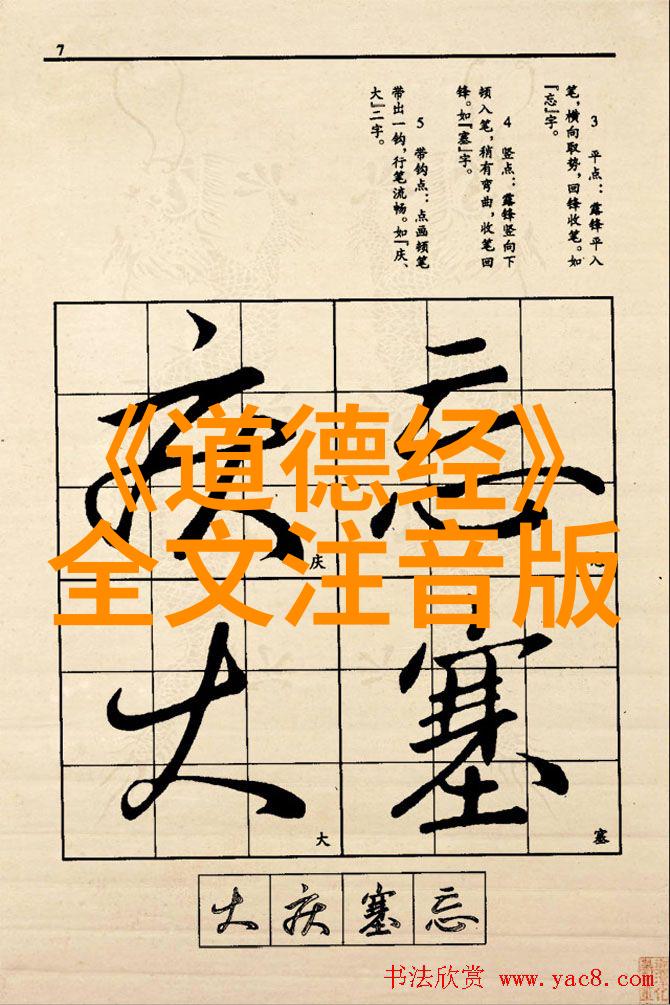 7
3 平点：露锋平入
笔，横向取势，回锋收笔。如
『忘』字。
4 竖点：露锋竖向下
顿入笔，稍有弯曲，收笔回
锋。如『塞』字。
5 带钩点：点画顿笔
带出一钩，行笔流畅。如『庆、
大』二字。
忘
庆
庆
塞
塞
大
大
《道德经》
全文注音版
大 庆 塞 忘
书法欣赏 www.yac8.com